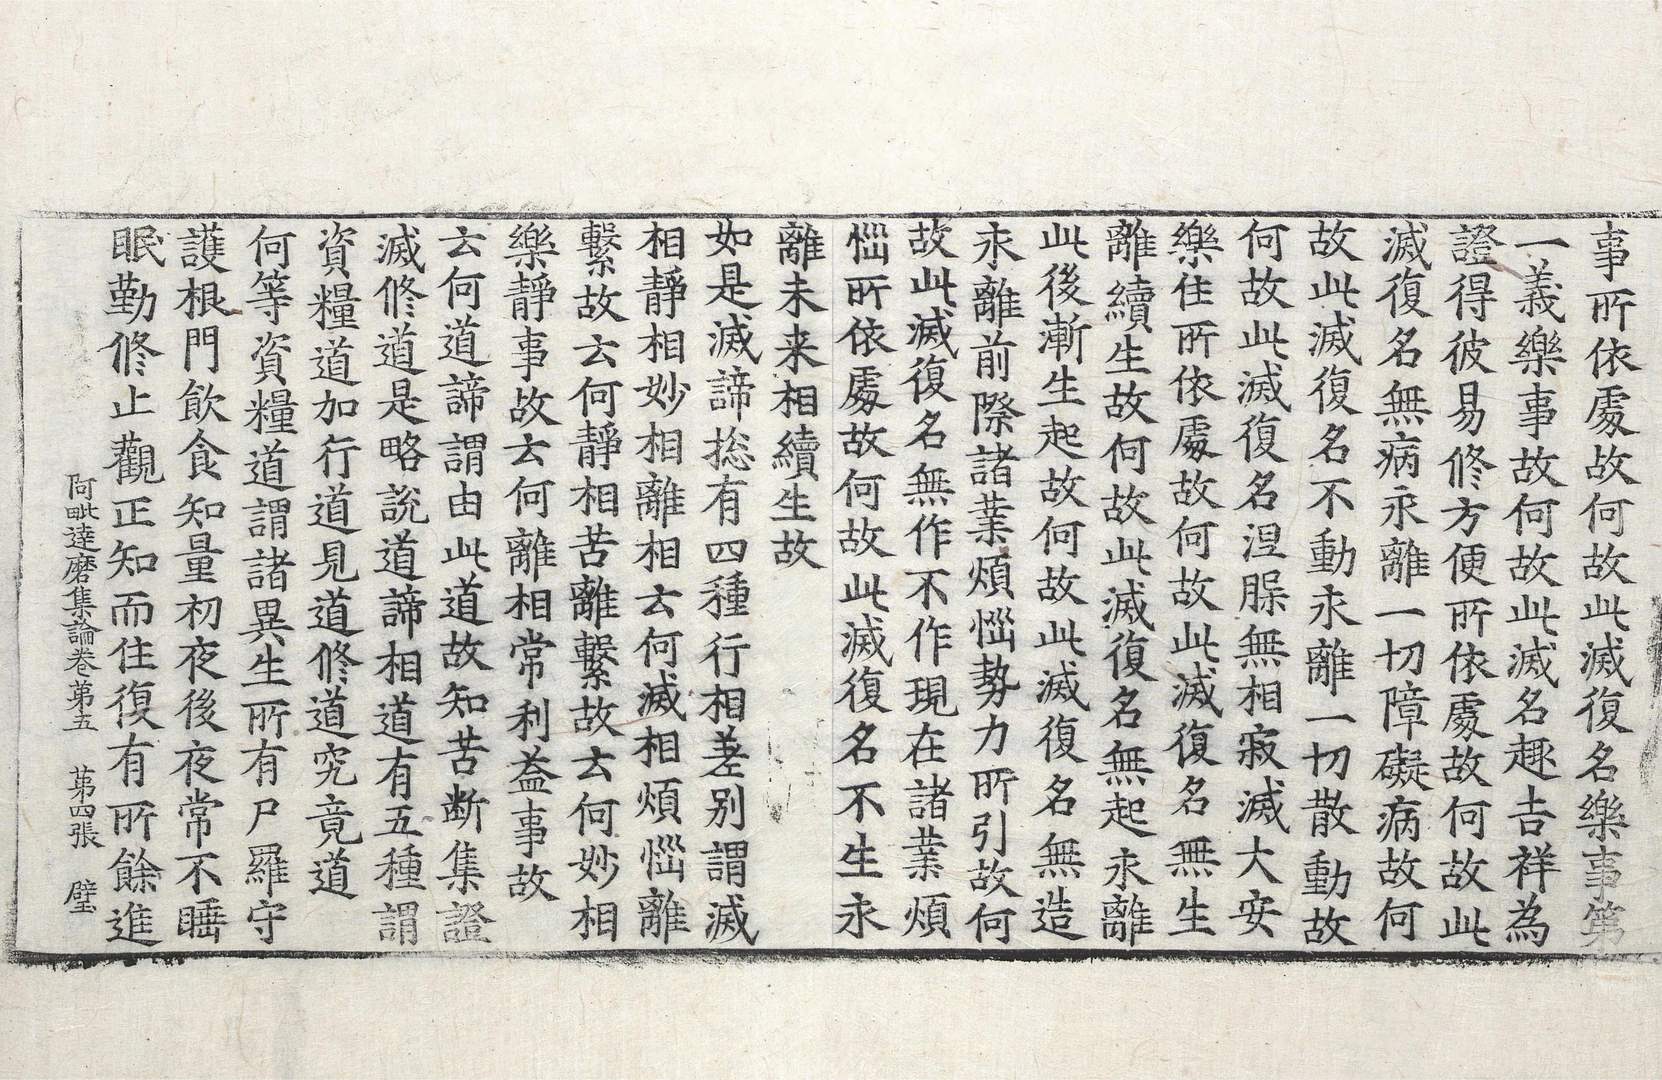 事所依處故何故此滅復名樂事第
一義樂事故何故此滅名趣吉祥為
證得彼易修方便所依處故何故此
滅復名無病永離一切障礙病故何
故此滅復名不動永離一切散動故
何故此滅復名涅槃無相寂滅大安
樂住所依處故何故此滅復名無生
離續生故何故此滅復名無起永離
此後漸生起故何故此滅復名無造
永離前際諸業煩惱勢力所引故何
故此滅復名無作不作現在諸業煩
惱所依處故何故此滅復名不生永
離未来相續生故
如是滅諦捴有四種行相差別謂滅
相靜相妙相離相云何滅相煩惱離
繫故云何靜相苦離繫故云何妙相
樂靜事故云何離相常利益事故
云何道諦謂由此道故知苦断集證
滅修道是略說道諦相道有五種謂
資糧道加行道見道修道究竟道
何等資糧道謂諸異生所有尸羅守
護根門飲食知量初夜後夜常不睡
眠勤修止觀正知而住復有所餘進
阿毗達磨集論卷第五 第四張 璧